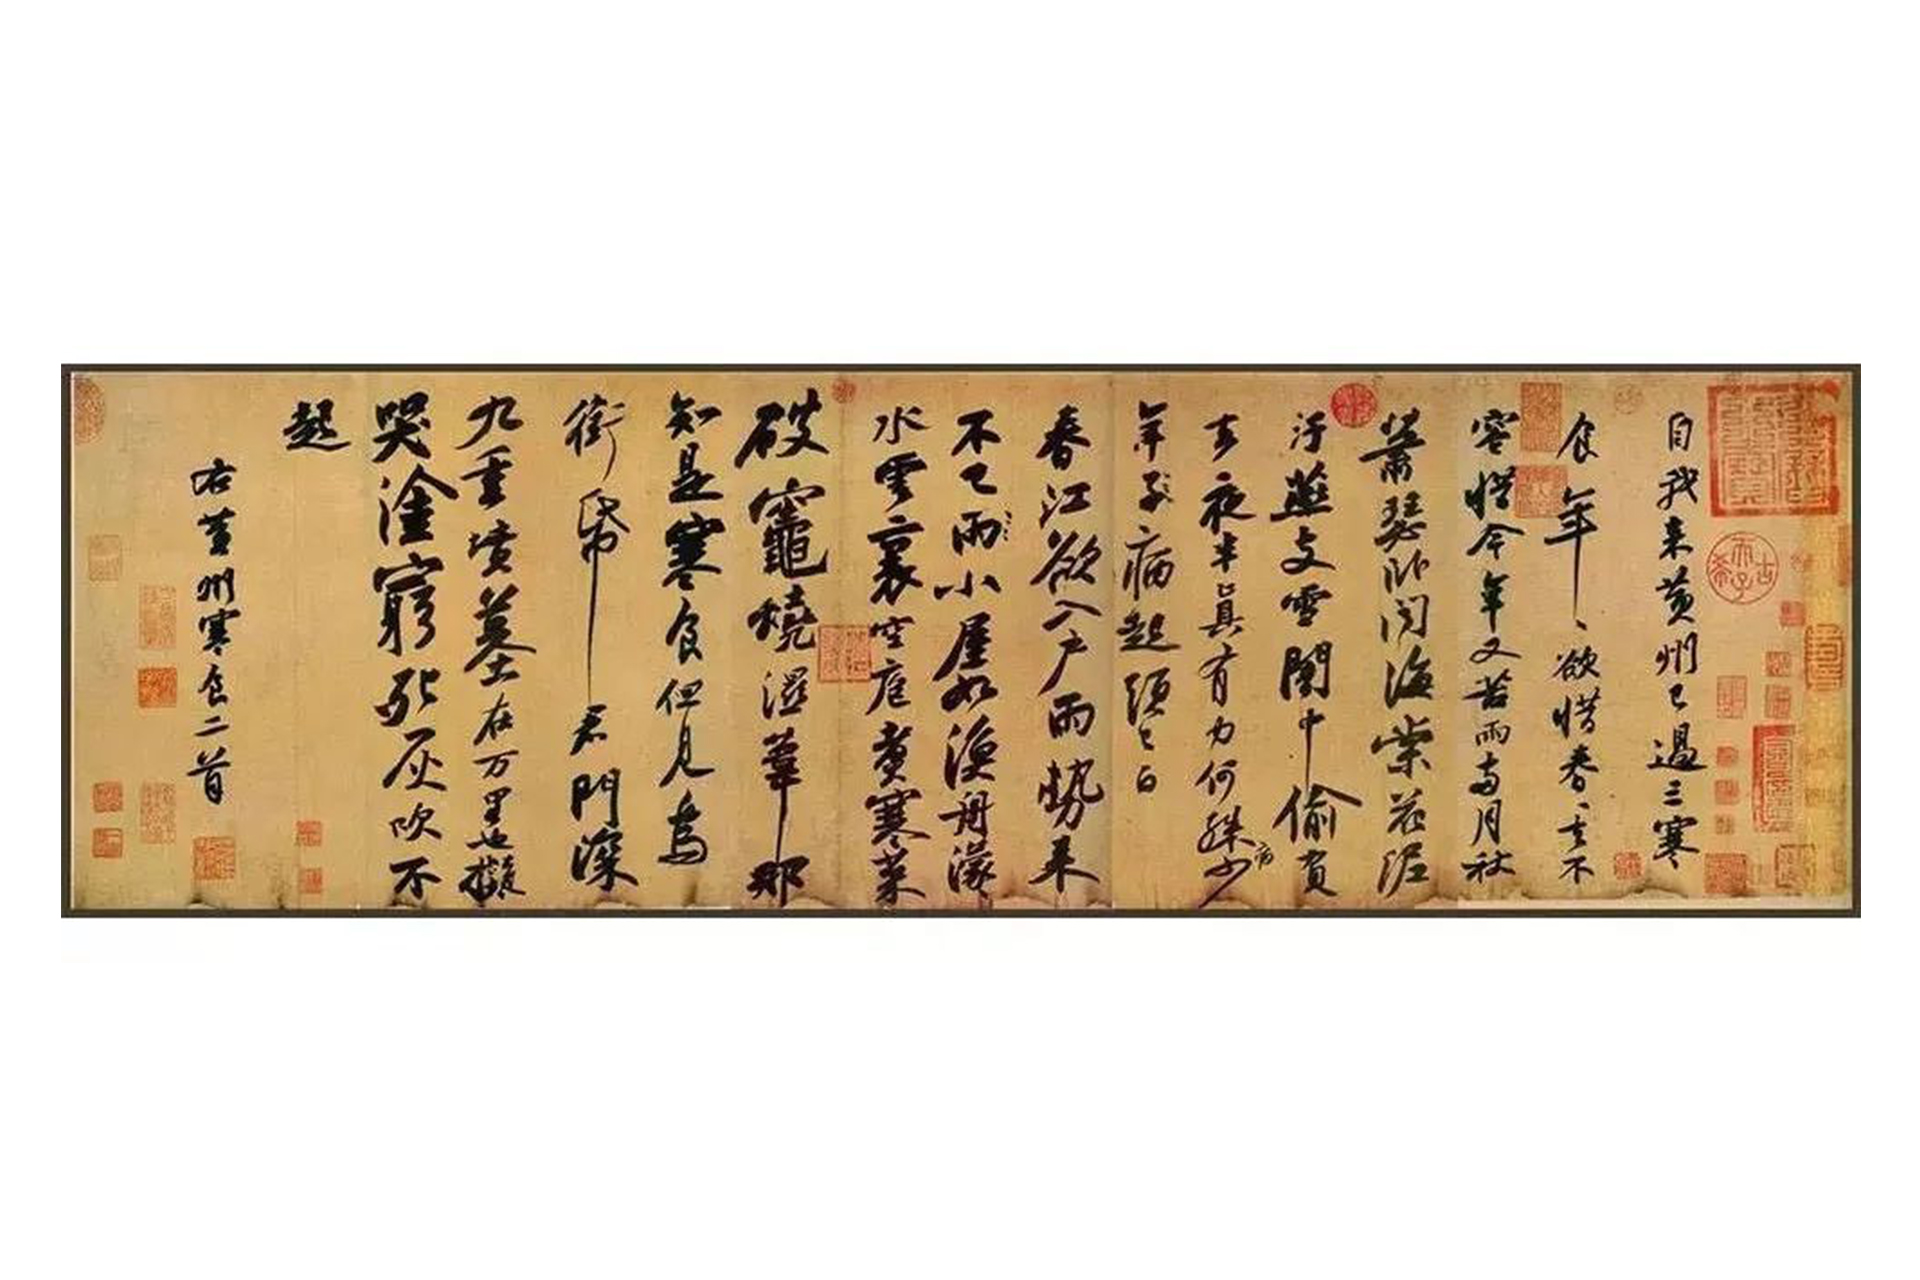 自我来黄州已過三寒
食年、、欲惜春、去不
容惜今年又苦雨两月秋
蕭瑟卧聞海棠花泥
汙燕支雪闇中偷負
去夜半真有力何殊病少
年子病起頭已白
春江欲入户雨勢来
不已雨小屋如漁舟濛、
水雲裏空庖煮寒菜
破竈燒濕葦那
知是寒食但見烏
銜帋君門深
九重墳墓在万里也擬
哭塗窮死灰吹不
起
右黄州寒食二首
古希天子